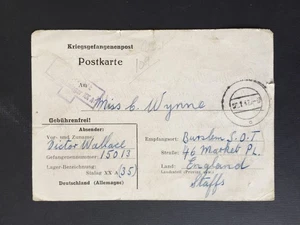 Kriegsgefangenenpost
Postkarte
An
Miss C Wynne
Gebührenfrei!
Absender:
Vor- und Zuname:
Victor Wallace
Gefangenennummer: 15013
Lager-Bezeichnung:
Stalag XX A (35)
Deutschland (Allemagne)
Empfangsort: Burslem S.O.T
Straße: 46 Market PL.
Land: England
Staffs